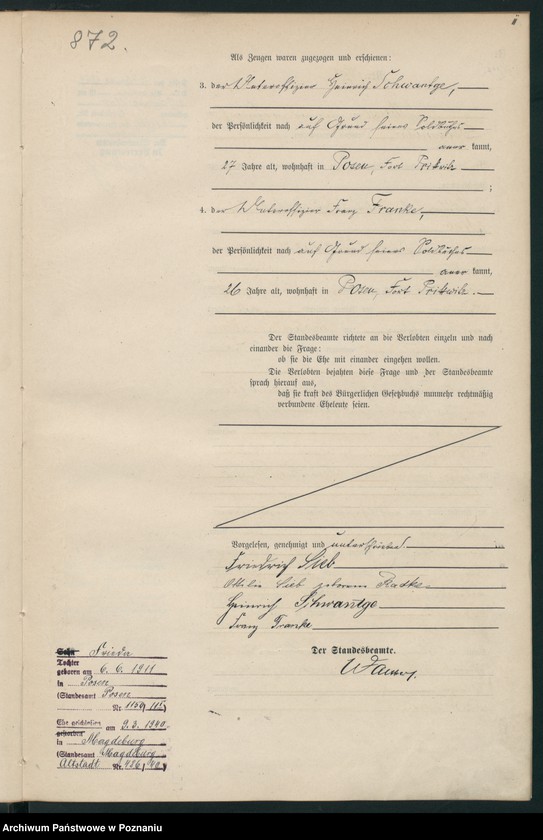 872.
Als Zeugen waren zugezogen und erschienen:
3. der Unteroffizier Heinrich Schwantge,
der Persönlichkeit nach auf Grund seines Soldbuches
aner kannt,
27 Jahre alt, wohnhaft in Posen, Fort Prittwitz
;
4. der Unteroffizier Franz Franke,
der Persönlichkeit nach auf Grund seines Soldbuches
aner kannt,
26 Jahre alt, wohnhaft in Posen, Fort Prittwitz.
Der Standesbeamte richtete an die Verlobten einzeln und nach
einander die Frage:
ob sie die Ehe mit einander eingehen wollen.
Die Verlobten bejahten diese Frage und der Standesbeamte
sprach hierauf aus,
daß sie kraft des Bürgerlichen Gesetzbuchs nunmehr rechtmäßig
verbundene Eheleute seien.
Vorgelesen, genehmigt und unterschrieben.
Friedrich
geborene
Heinrich Schwantge
Franz Franke
Der Standesbeamte.
Sohn Frieda
Tochter
geboren am 6. 6. 1911
in Posen
(Standesamt Posen
Nr. 1159/11)
Ehe geschlossen am 9. 3. 1940
gestorben
in Magdeburg
(Standesamt Magdeburg
Altstadt Nr. 426/40)
Archiwum Państwowe w Poznaniu